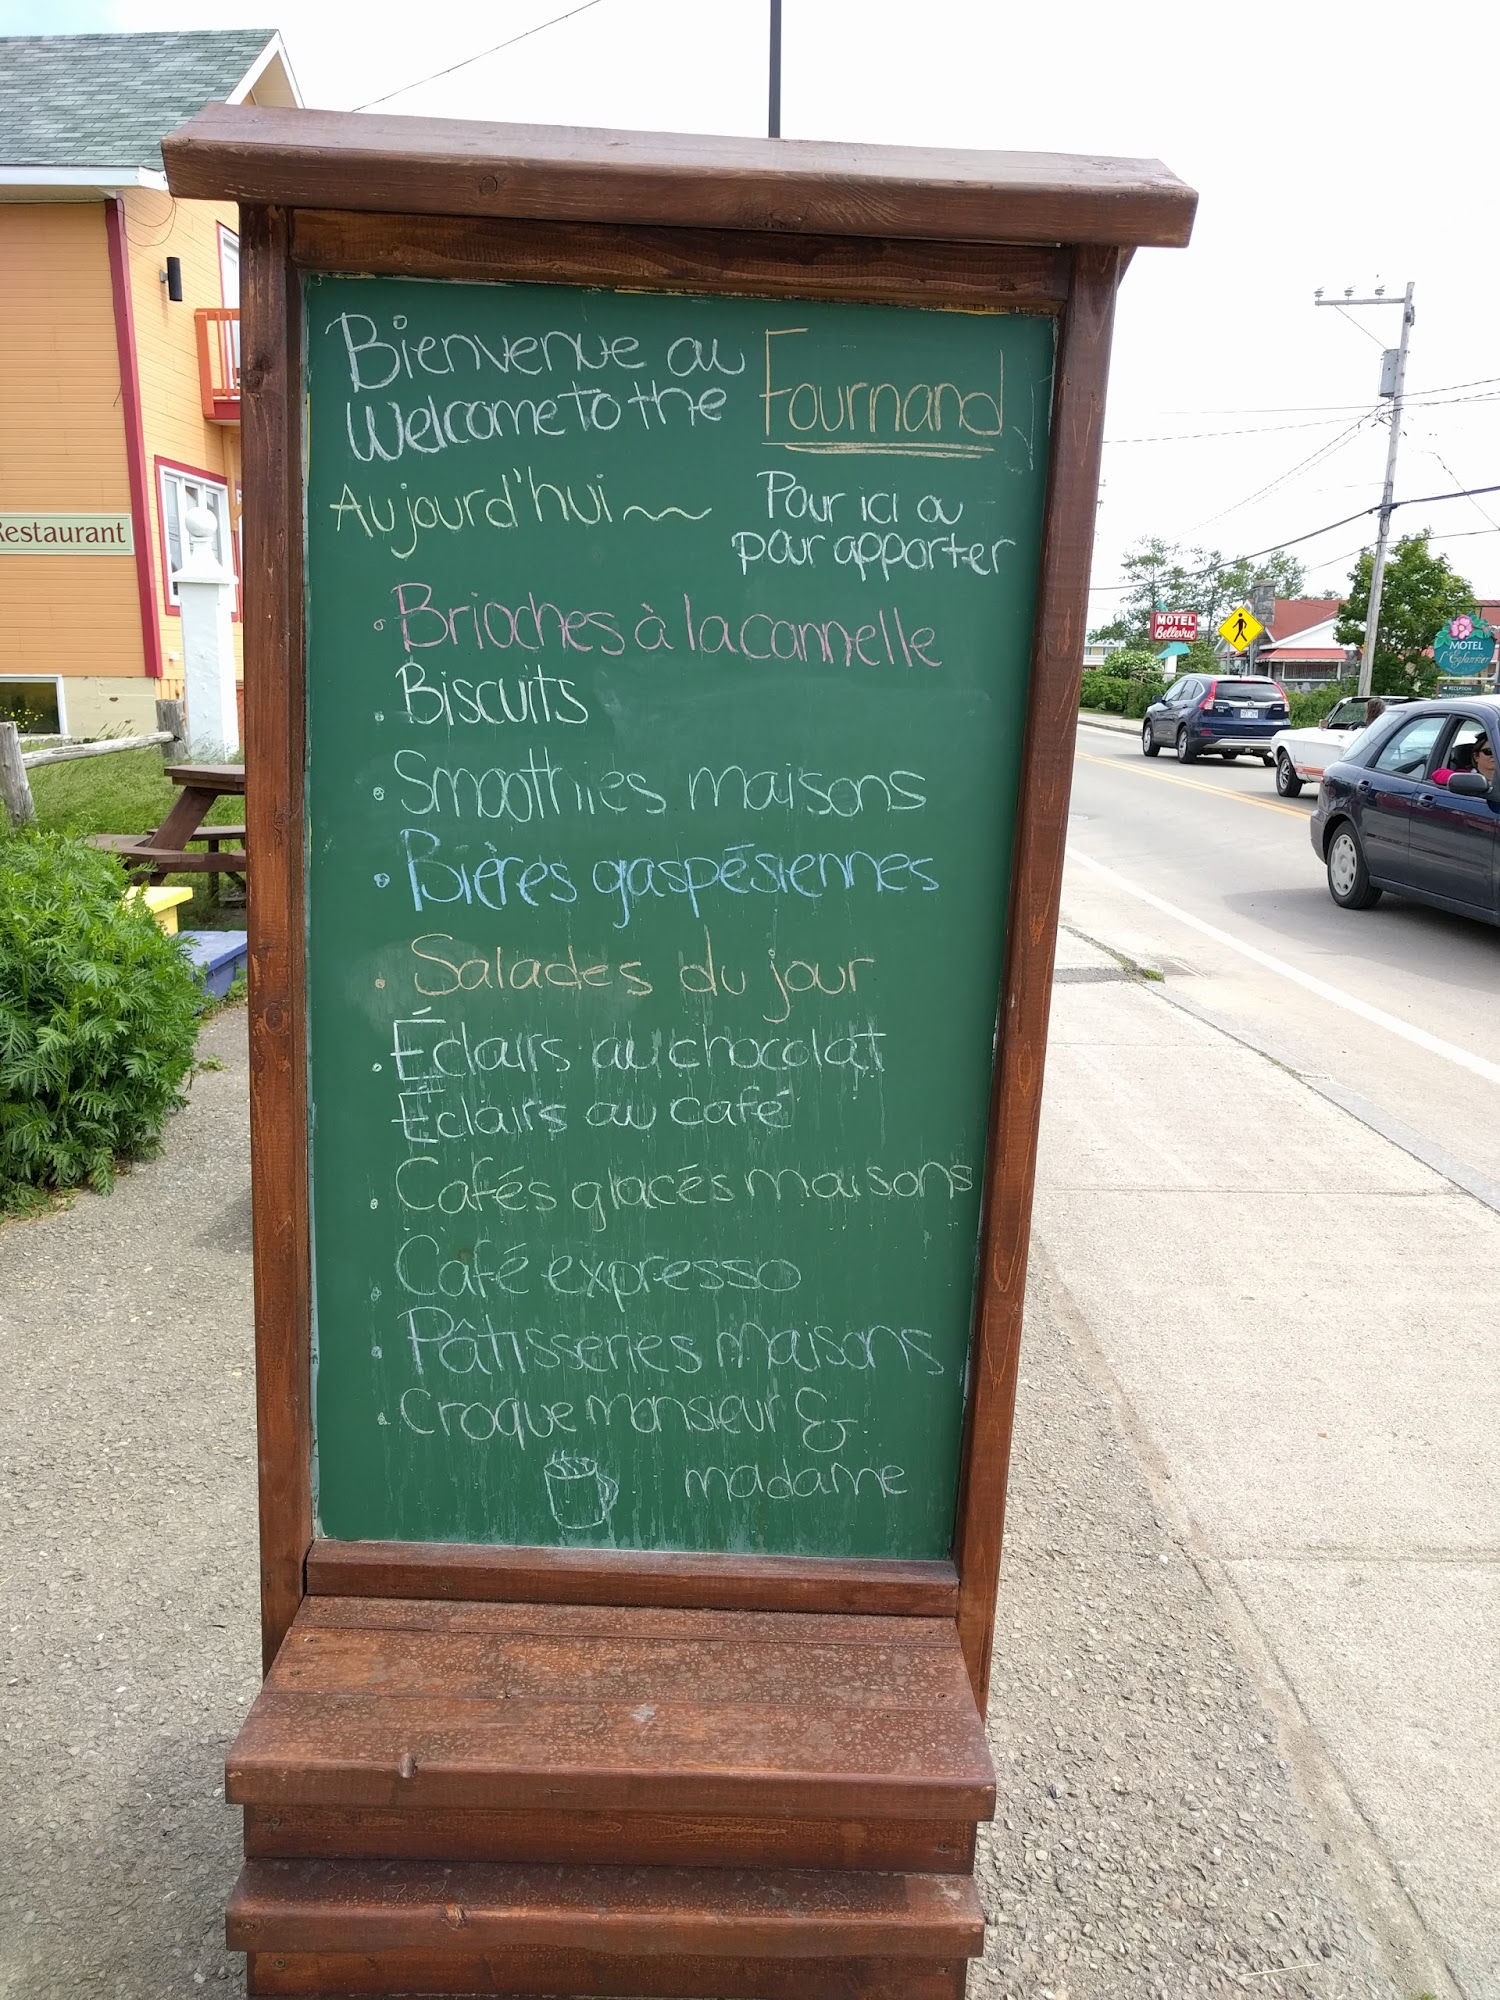 Bienvenue au
Welcome to the
Fournand
Aujourd'hui
Pour ici ou
pour apporter
Brioches à la cannelle
Biscuits
Smoothies maisons
Bières gaspésiennes
Salades du jour
Éclairs au chocolat
Éclairs au café
Cafés glacés maisons
Café expresso
Pâtisseries maisons
Croque monsieur &
madame
Restaurant
MOTEL
Bellevue
MOTEL
RECEPTION